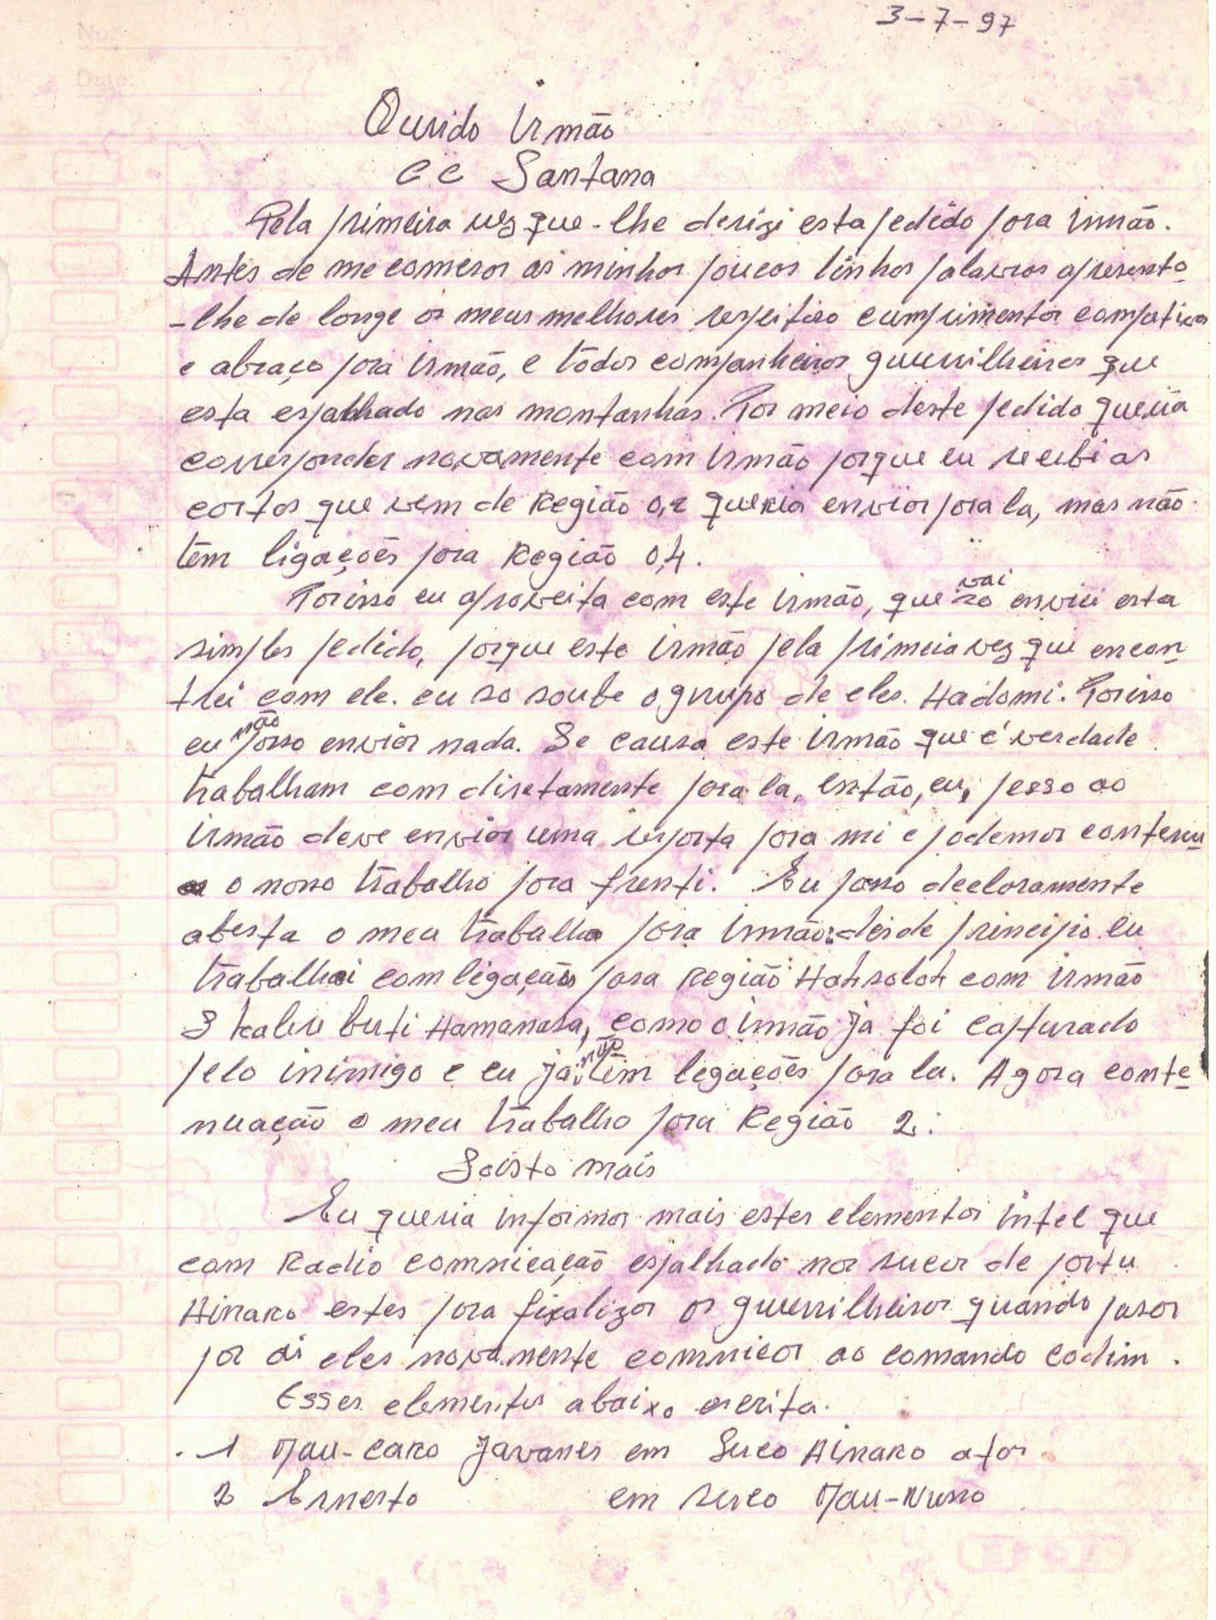 No:
Date:
3-7-97
Qurido Irmão
CC Santana
Pela primeira vez que-lhe derizi esta pedido para irmão.
Antes de me comesar as minhas poucas linhas palavras apresento
-lhe de longe os meus melhores respeitozo cumprimentos compativos
e abraço para irmão, e tôdos companheiros guerrilheiros que
esta espalhado nas montanhas. Por meio deste pedido queria
corresponder novamente com irmão porque eu recebi as
cartas que vem de Região 0,2 queria enviar para la, mas não
têm ligações para Região 0,4.
Porisso eu aproveita com este irmão, que vai enviu esta
simples pedido, porque este irmão pela primeia vez que encon
trei com ele. eu so soube o grupo de eles. Hadomi. Porisso
eu não posso enviar nada. Se causa este irmão que é verdade
trabalham com diretamente para la, então, eu, pesso ao
irmão deve enviar uma resposta para mi e podemos contenu
o nosso trabalho para frenti. Eu posso declaramente
abesta o meu trabalho para irmão: desde principio eu
trabalhei com ligação para Região Hahsolok com irmão
S kaliu buti Hamanasa, como o irmão ja foi capturado
pelo inimigo e eu ja não têm ligações para la. Agora conte
nuação o meu trabalho para Região 2.
Soisto mais
Eu queria informar mais estes elementos intel que
com Radio comnicação espalhado nos sucos de portu
Ainaro estes para fixalizar os guerrilheiros quando pasar
por ai eles novamente comnicar ao comando codim.
Esses elementos abaixo escrita.
1 Mau-caro Javanes em Suco Ainaro ator
2 Ernesto em suco Mau-Nuno